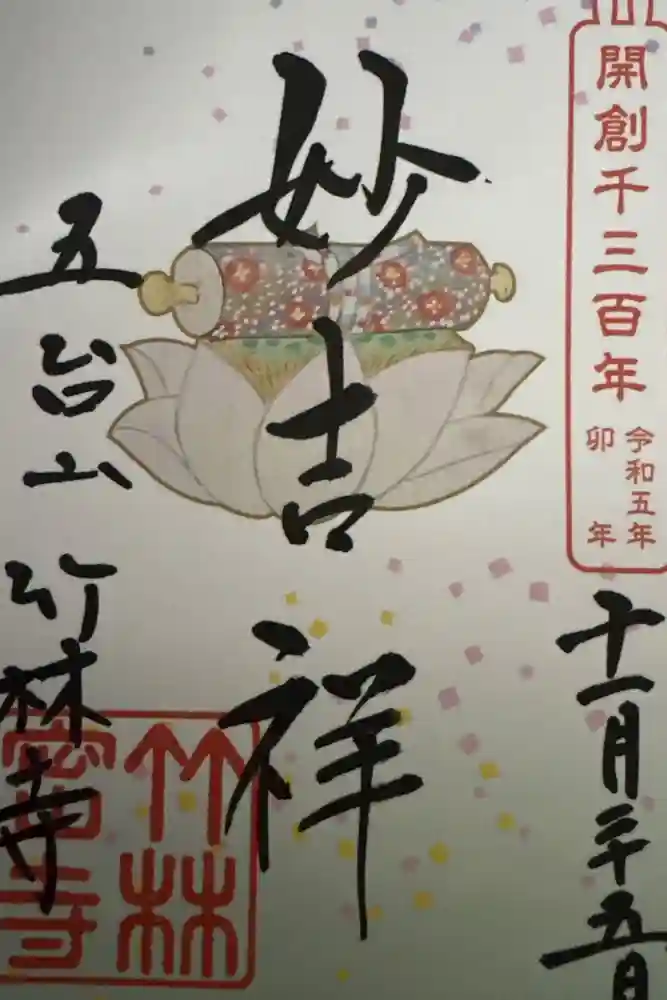 開創千三百年
令和五年
卯年
十一月二十五日
妙吉祥
五台山 竹林寺
竹林
密寺